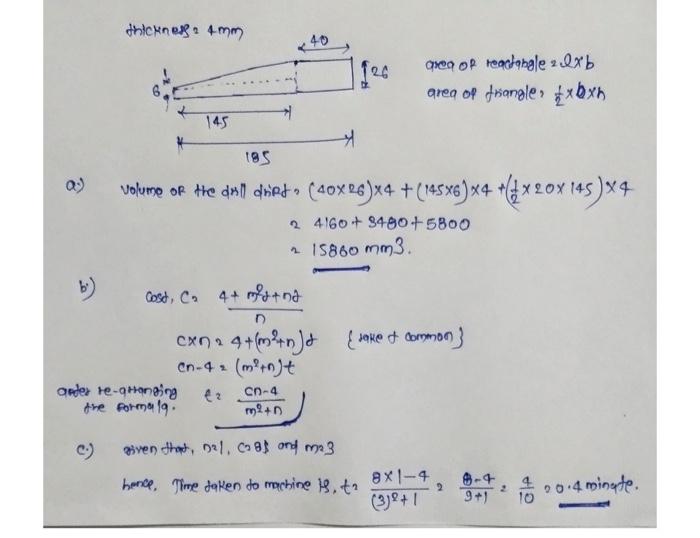 thickness = 4mm
40
26
6
145
185
area of reactangle = l×b
area of triangle = 1/2 ×b×h
a.) Volume of the drill drift = (40×26)×4 + (145×6)×4 + (1/2 × 20 × 145)×4
= 4160 + 3480 + 5800
= 15860 mm3.
b.) Cost, C = 4 + m²t + nt / n
C×n = 4 + (m²+n)t {take t common}
cn-4 = (m²+n)t
after re-arranging the formula. t = cn-4 / m²+n
c.) Given that, n=1, C=8$ and m=3
hence, Time taken to machine is, t = 8×1-4 / (3)²+1 = 8-4 / 9+1 = 4/10 = 0.4 minute.